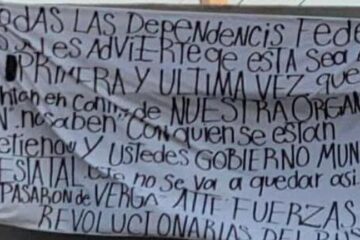 ODAS LAS DEPENDENCIS FEDE
LES ADVIERTE QE ESTA SEA
PRIMERA Y ULTIMA VEZ QUE
DE NUESTRA ORGAN
NO SABEN CON QUIEN SE ESTAN
Y USTEDES GOBIERNO MUN
ESTATAL ESTO NO SE VA A QUEDAR ASI
PASARON DE VERGA ATTE FUERZAS
REVOLUCIONARIAS